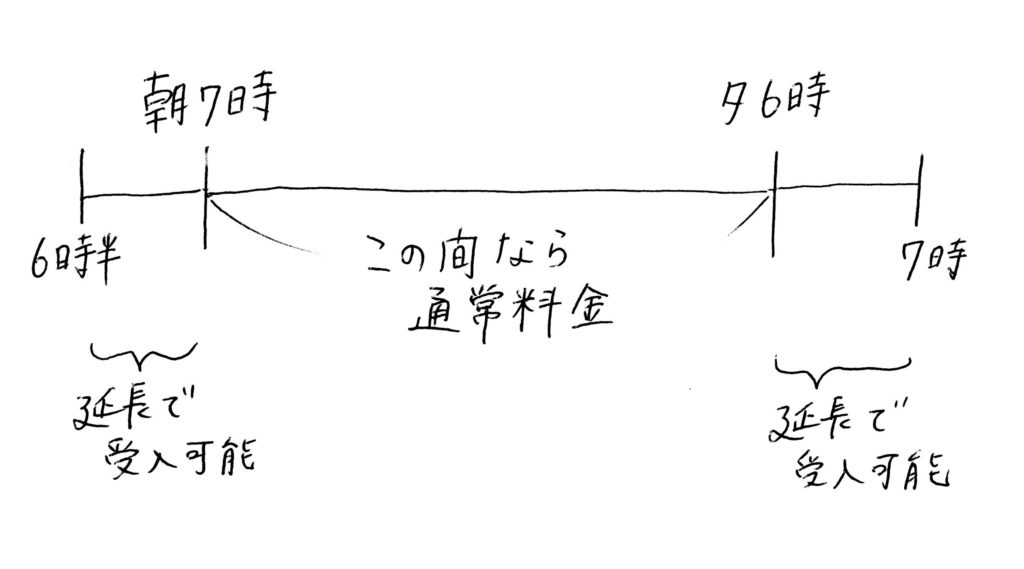 朝7時
夕6時
6時半
この間なら
通常料金
7時
延長で
受入可能
延長で
受入可能